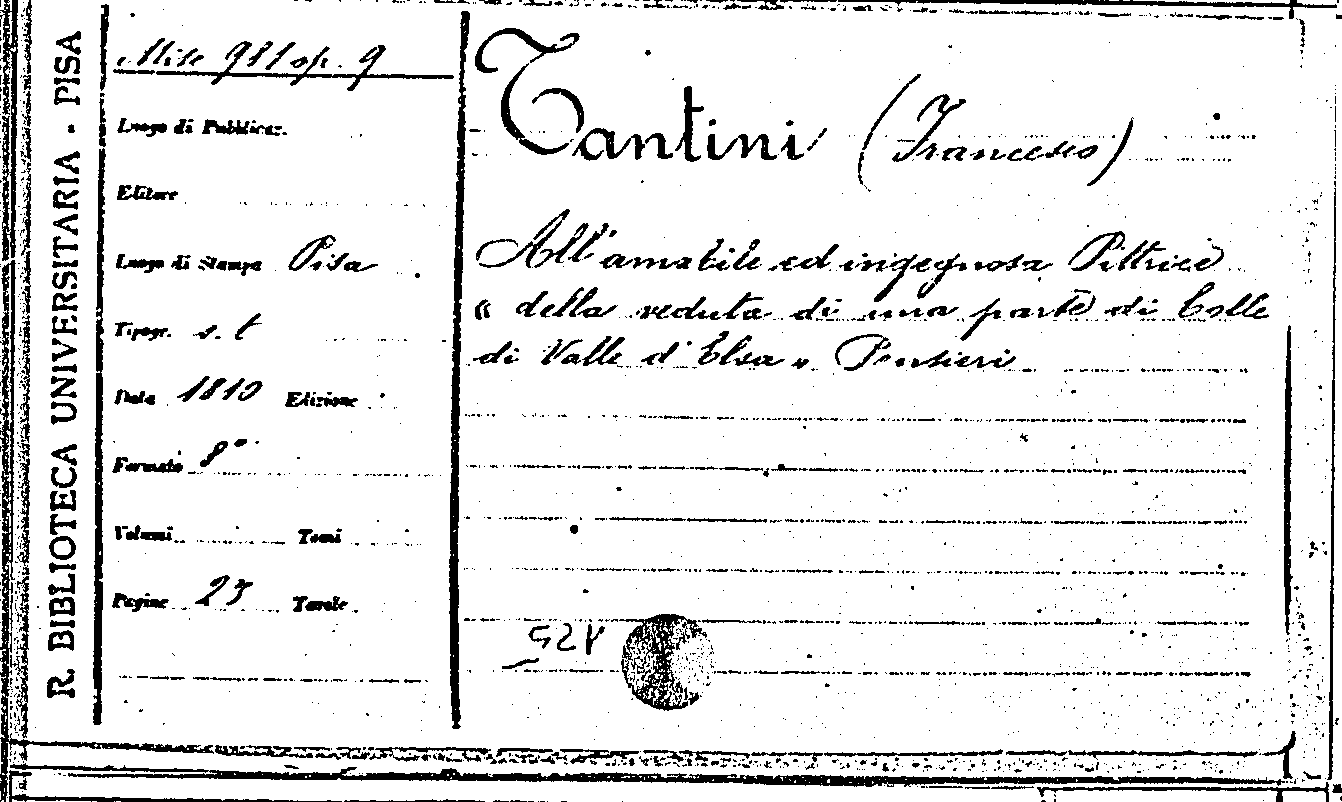 R. BIBLIOTECA UNIVERSITARIA - PISA
Misc 981 op. 9
Luogo di Pubblicaz.
Editore
Luogo di Stampa Pisa
Tipogr. s. t
Data 1810 Edizione
Formato 8°
Volumi Tomi
Pagine 23 Tavole
Tantini (Francesco)
All'amabile ed ingegnosa Pittrice
« della veduta di una parte di Colle
di Valle d'Elsa » Pensieri